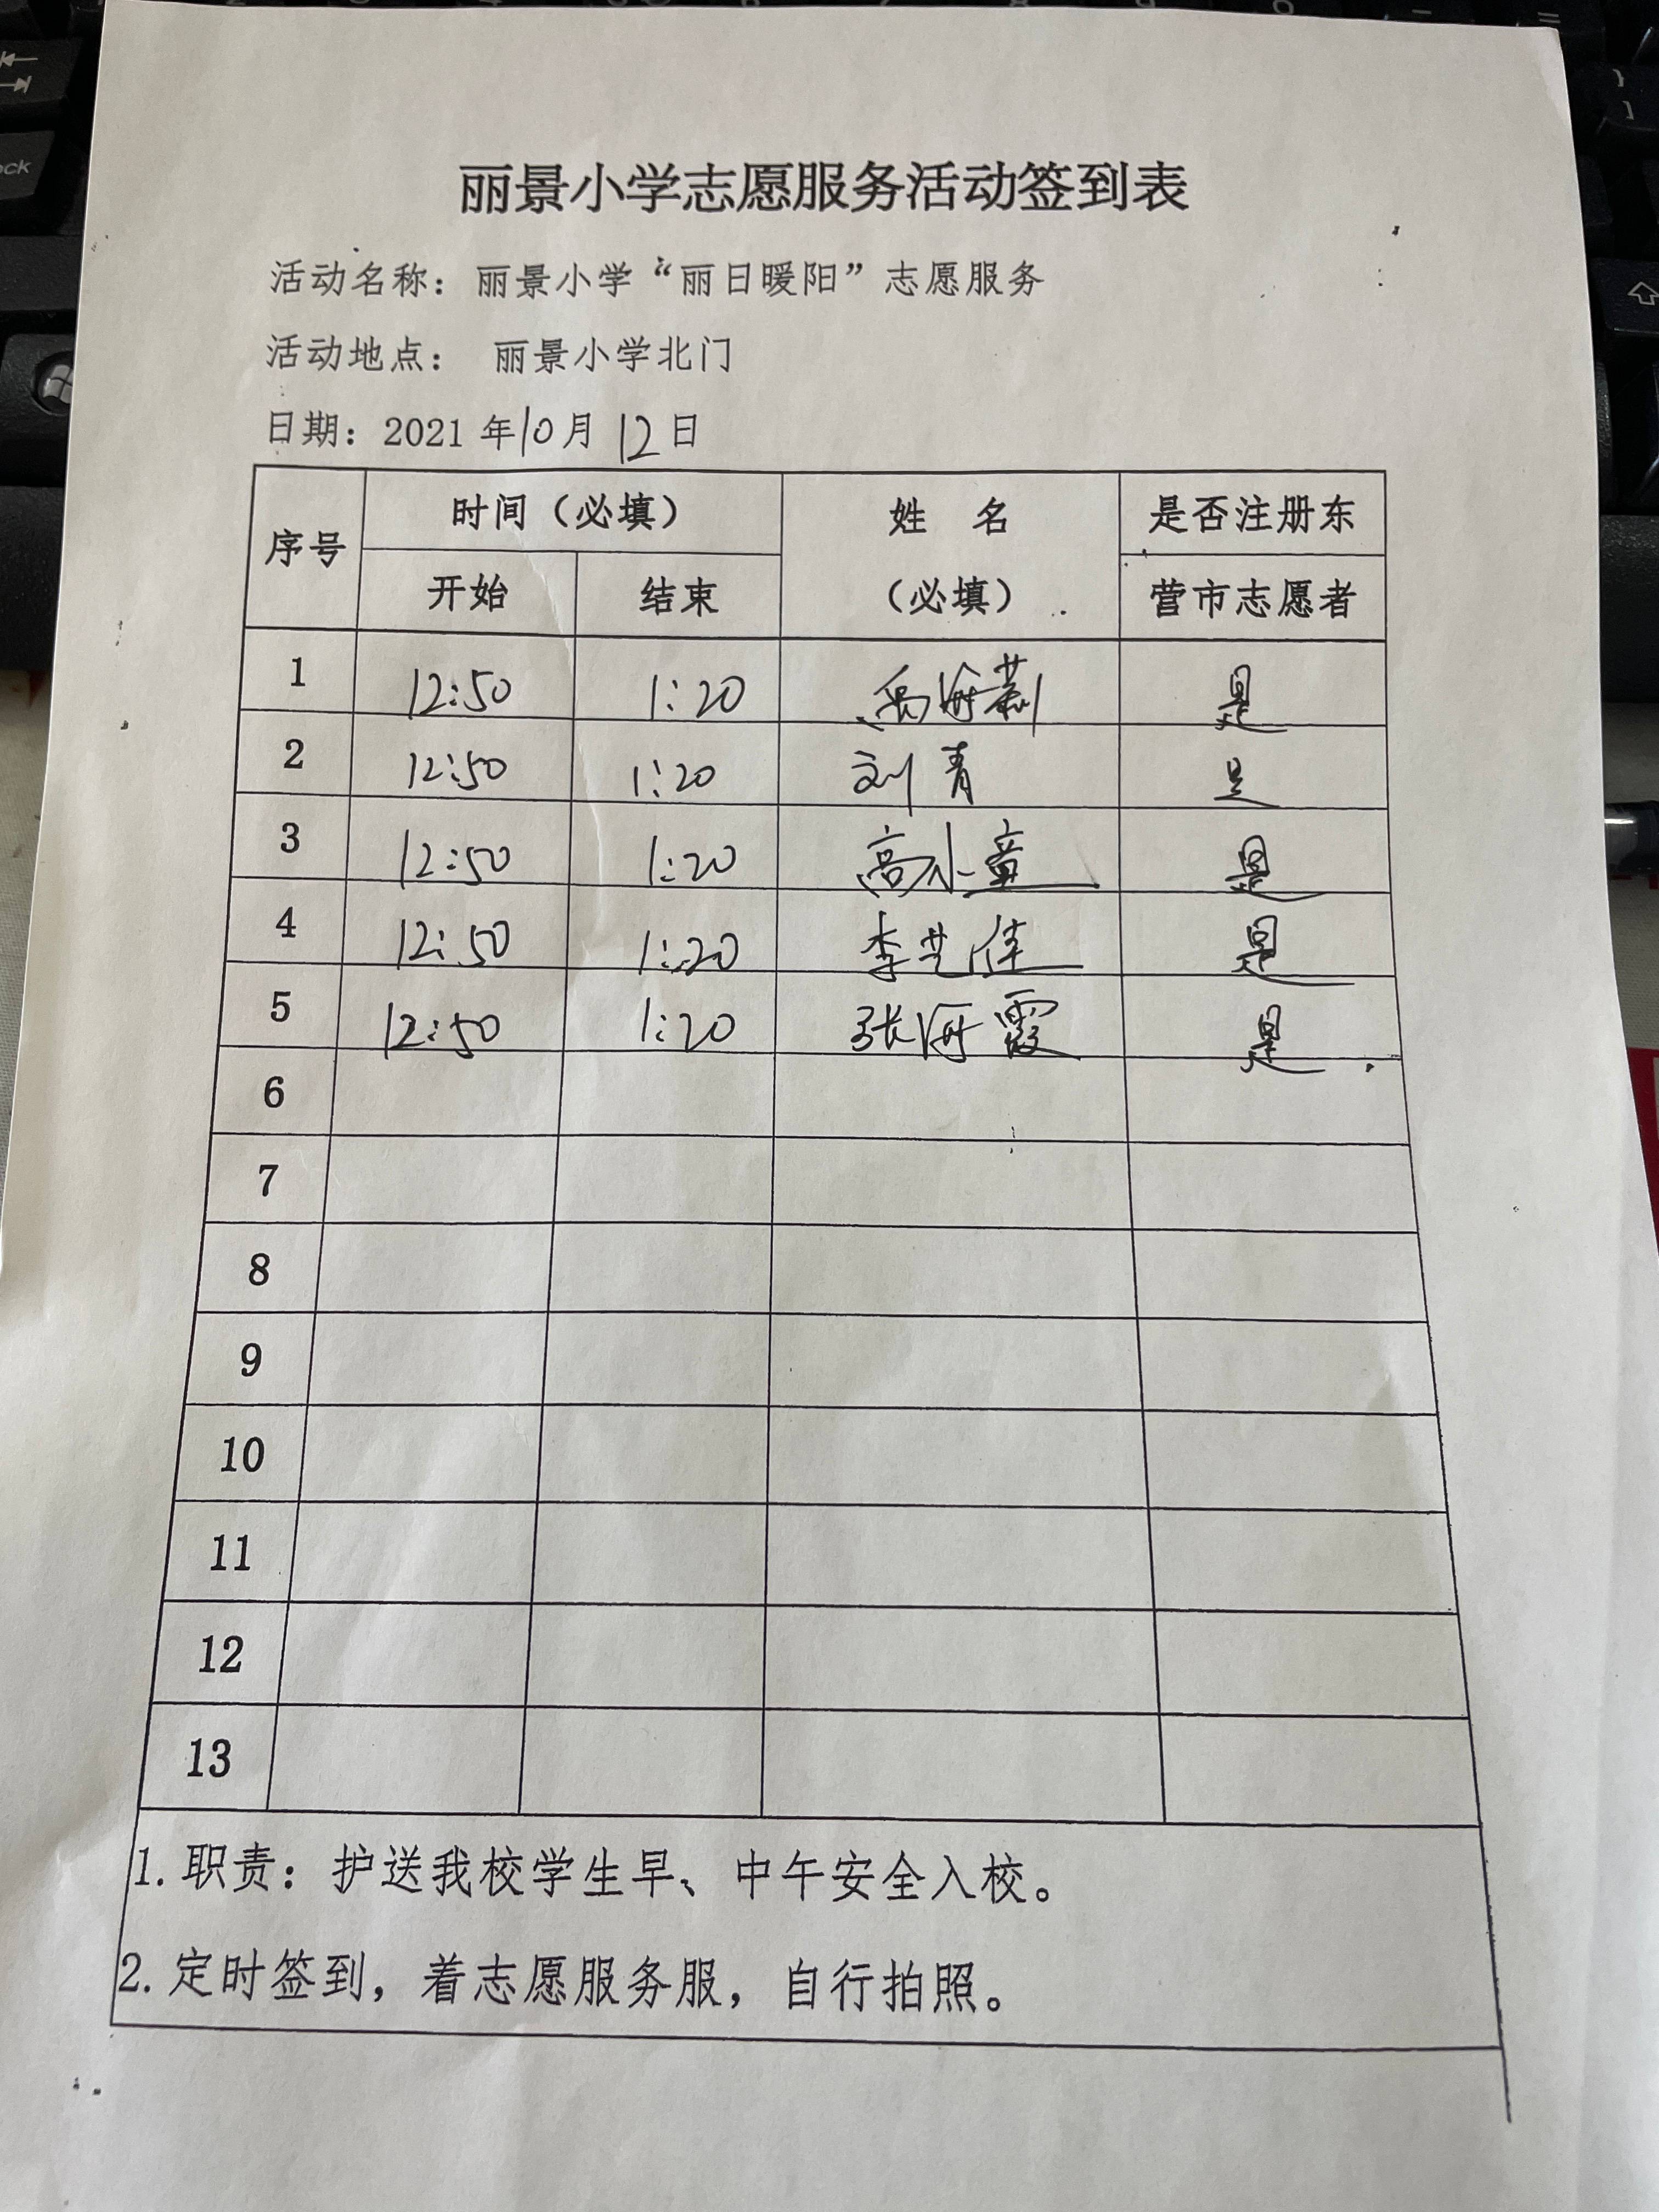 丽景小学志愿服务活动签到表
活动名称：丽景小学“丽日暖阳”志愿服务
活动地点： 丽景小学北门
日期：2021 年10月 12日
序号 时间（必填） 姓 名 是否注册东
开始 结束 （必填） 营市志愿者
1 12:50 1:20 是
2 12:50 1:20 刘青 是
3 12:50 1:20 高小童 是
4 12:50 1:20 李艺佳 是
5 12:50 1:20 张海霞 是
6
7
8
9
10
11
12
13
1. 职责：护送我校学生早、中午安全入校。
2. 定时签到，着志愿服务服，自行拍照。